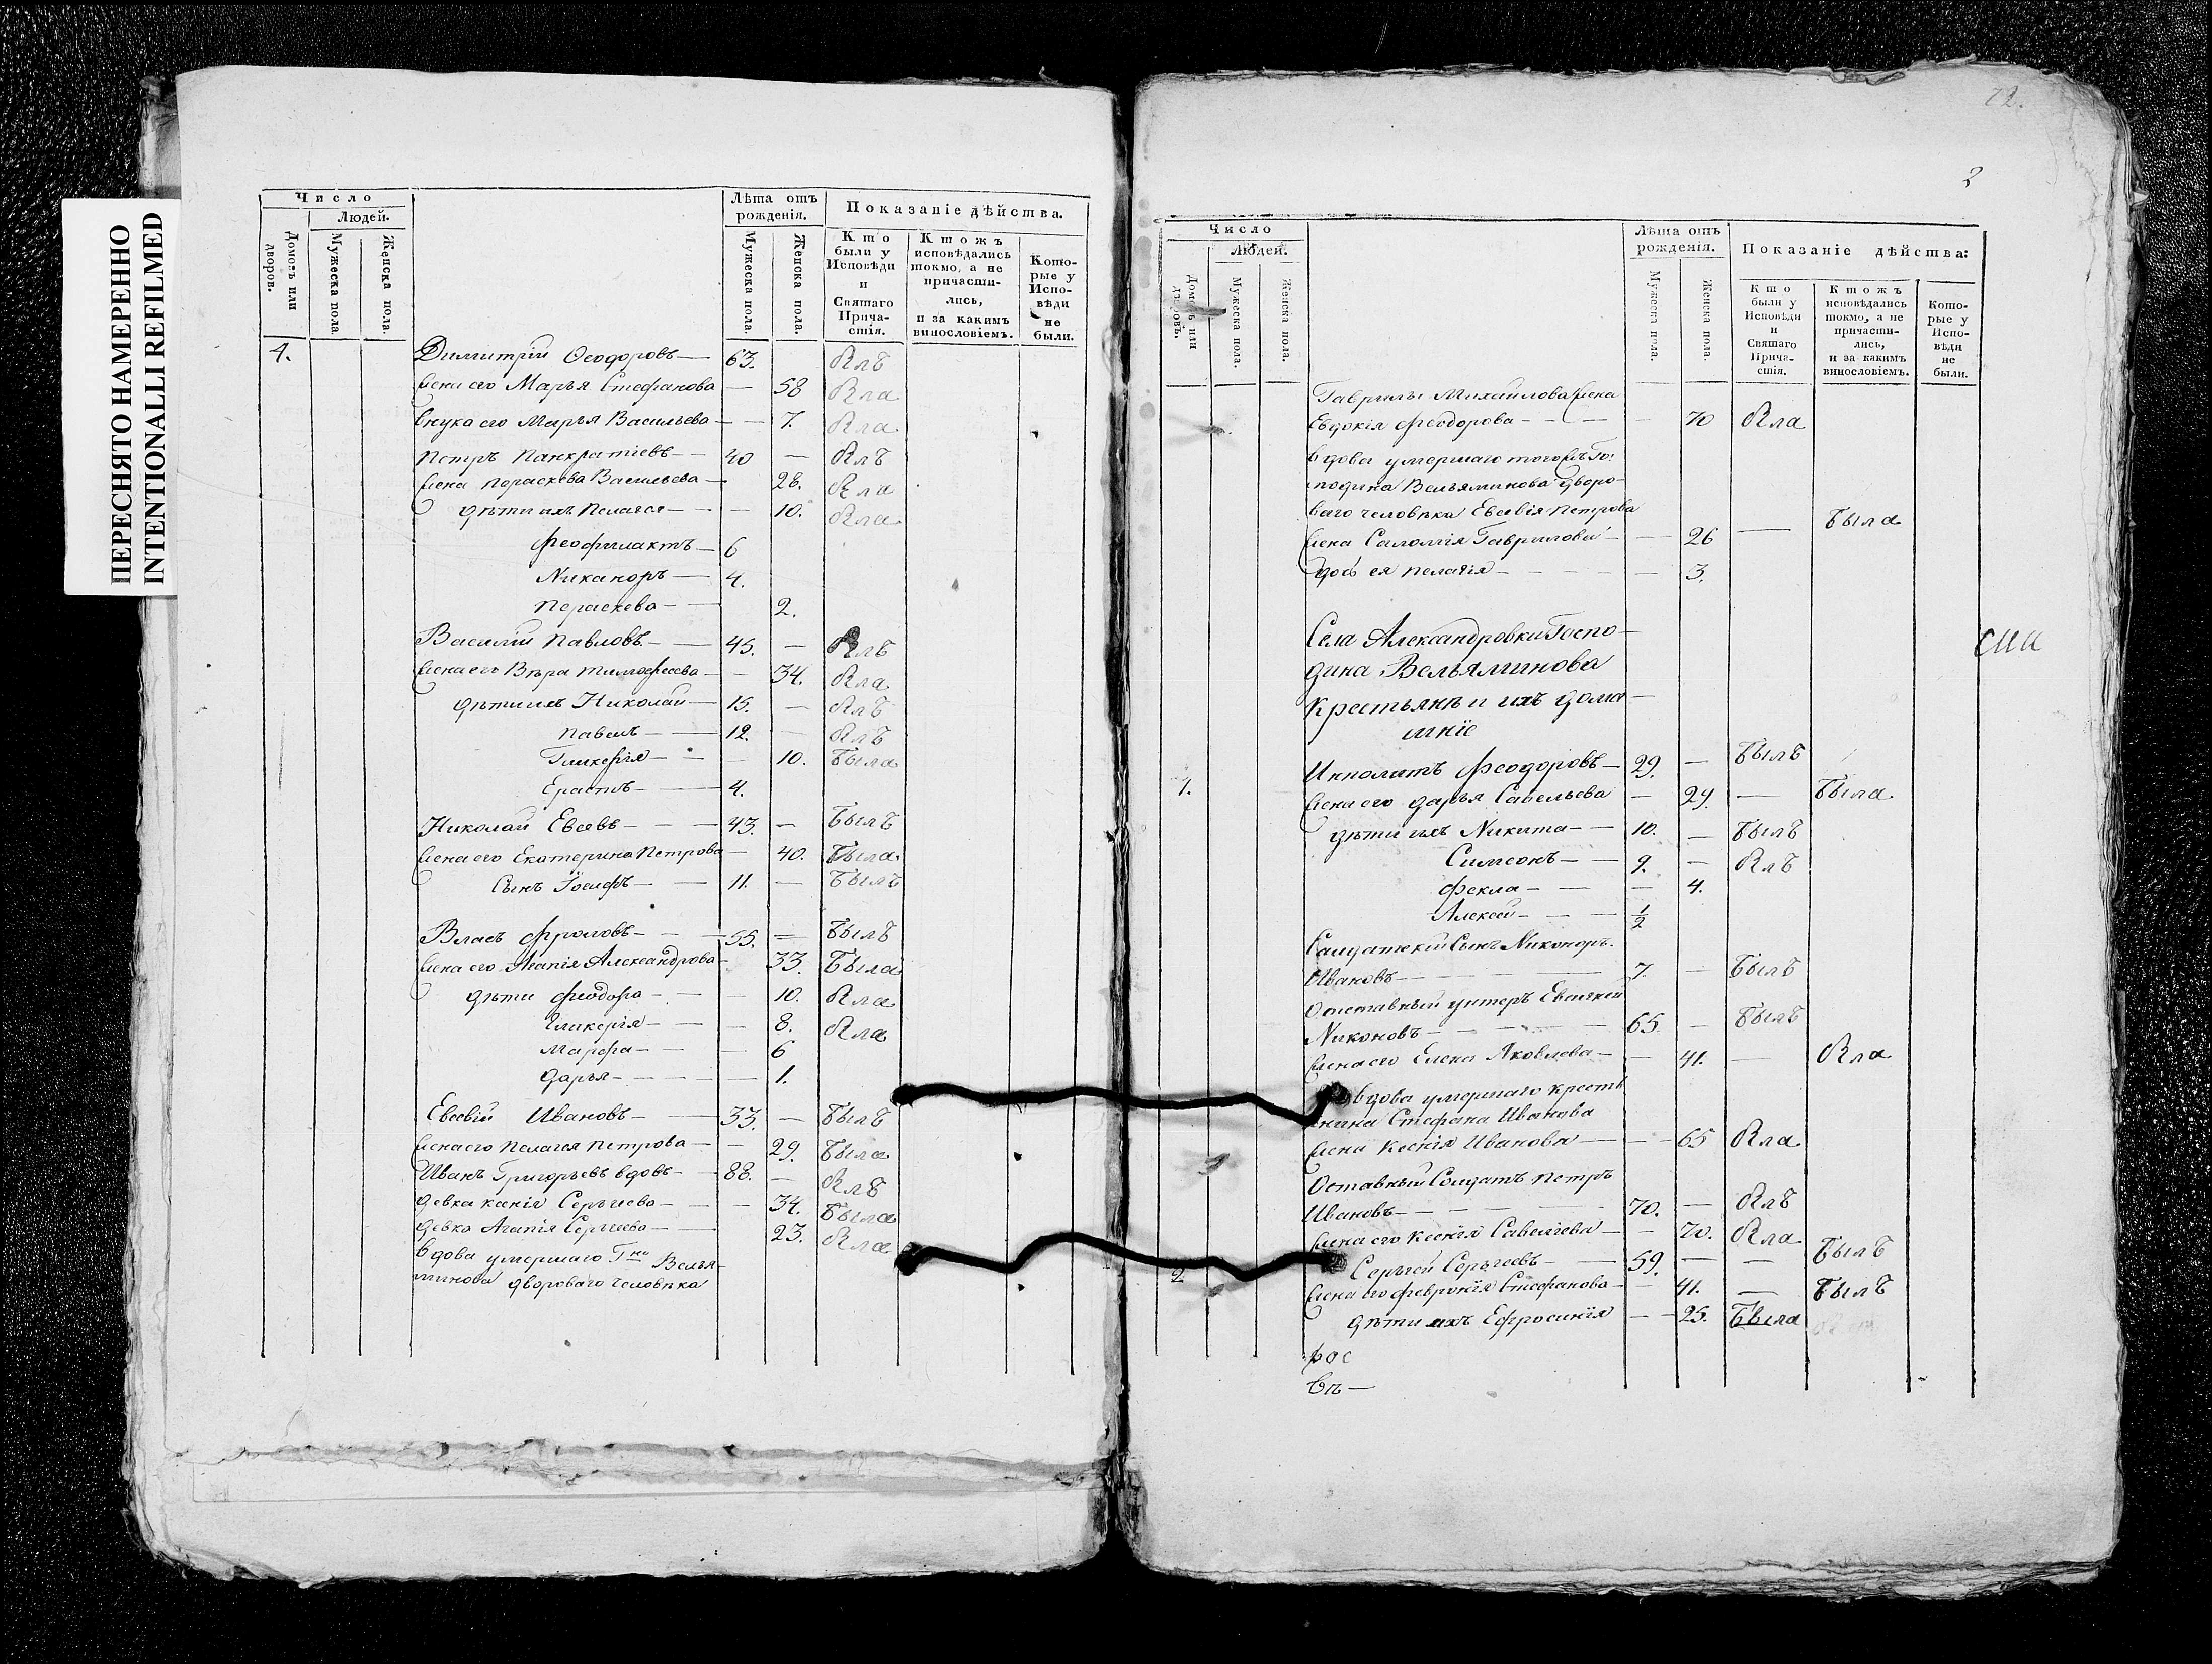 ПЕРЕСНЯТО НАМЕРЕННО
INTENTIONALLI REFILMED
Число
Людей.
Домовъ или дворов.
Мужеска пола.
Женска пола.
Лѣта отъ рожденія.
Мужеска пола.
Женска пола.
Показаніе дѣйства.
Кто были у Исповѣди и Святаго Причастія.
Ктожъ исповѣдались токмо, а не причастились, и за какимъ винословіемъ.
Которые у Исповѣди не были.
4. Димитрій Ѳеодоровъ — 63. Ялъ
Жена его Марья Стефанова — 58 Яла
Внука его Марья Васильева — — 7. Яла
Петръ Панкратіевъ — 40 — Ялъ
Жена Пораскева Васильева — 28. Яла
дѣти ихъ Пелагея — — 10. Яла
Феофилактъ — 6
Никаноръ — 4.
Пораскева — 2.
Василій Павловъ — 45. — Ялъ
Жена его Вѣра Тимофеева — — 34. Яла
дѣти ихъ Николай — 15. — Ялъ
Павелъ — 12. — Ялъ
Гликерія — — 10. Была
Ерастъ — 4.
Николай Евсевъ — 43. — Былъ
Жена его Екатерина Петрова — 40. Была
Сынъ Іосифъ — 11. — Былъ
Власъ Фроловъ — 55. — Былъ
Жена его Агапія Александрова — 33. Была
дѣти Феодора — — 10. Яла
Гликерія — — 8. Яла
Марфа — — 6
Дарья — — 1.
Евсевій Ивановъ — 33. — Былъ
Жена его Пелагея Петрова — — 29. Была
Иванъ Григорьевъ вдовъ — 88. — Ялъ
Девка Ксенія Сергѣева — — 34. Была
Девка Агапія Сергѣева — 23. Яла
Вдова умершаго Гна Велья-
минова двороваго человѣка
72.
2
Число
Людей.
Домовъ или дворовъ.
Мужеска пола.
Женска пола.
Лѣта отъ рожденія.
Мужеска пола.
Женска пола.
Показаніе дѣйства:
Кто были у Исповѣди и Святаго Причастія.
Ктожъ исповѣдались токмо, а не причастились, и за какимъ винословіемъ.
Которые у Исповѣди не были.
Гаврилы Михайлова Жена
Евдокія Феодорова — — 70 Яла
Вдова умершаго тогожъ Го-
сподина Вельяминова дворо-
ваго человѣка Евсевія Петрова
Жена Саломія Гаврилова — — 26 — Была
дочь ея Пелагія — — 3.
Села Александровки Госпо-
дина Вельяминова
Крестьянѣ и ихъ дома-
шніе
1. Ипполитъ Феодоровъ — 29. — Былъ
Жена его Дарья Савельева — 24. — Была
дѣти ихъ Никита — 10. — Былъ
Симеонъ — 9. — Ялъ
Фекла — — 4.
Алексей — ½
Салдатскій Сынъ Никоноръ
Ивановъ — 7. — Былъ
Отставный унтеръ
Никоновъ — 65 — Былъ
Жена его Елена Яковлева — — 41. — Яла
Вдова умершаго крестья-
нина Стефана Иванова
Жена Ксенія Иванова — — 65 Яла
Оставный Солдатъ Петръ
Ивановъ — 70. — Ялъ
Жена его Ксенія Савелиева — — 70. Яла
2 Сергѣй Сергѣевъ — 59. — — Былъ
Жена его Февронія Стефанова — 41. — Былъ
дѣти ихъ Ефросинія — — 25. Была
рос